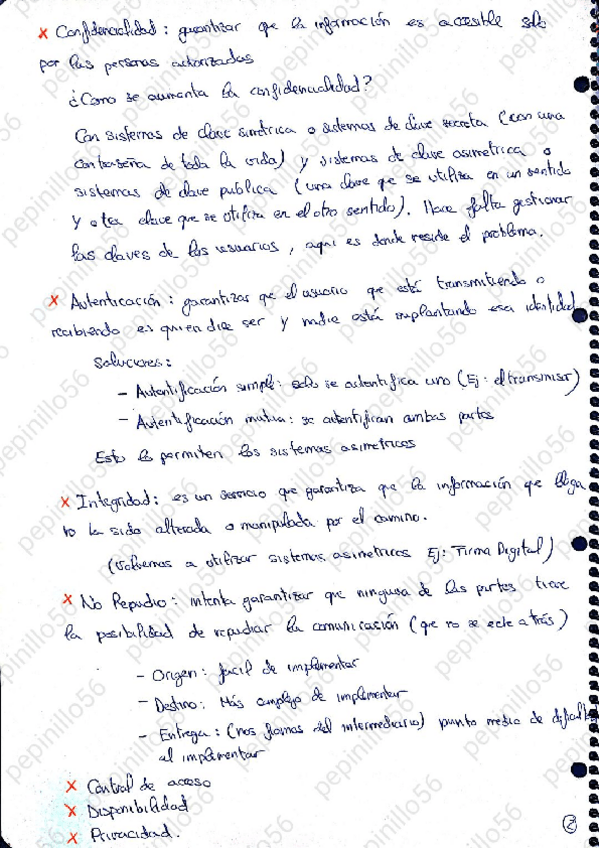 x Confidencialidad: garantizar que la información es accesible solo
por las personas autorizadas
¿Como se aumenta la confidencialidad?
Con sistemas de clave simétrica o sistemas de clave secreta (con una
contraseña de toda la vida) y sistemas de clave asimetrica o
sistemas de clave publica (una clave que se utiliza en un sentido
y otra clave que se utiliza en el otro sentido). Hace falta gestionar
las claves de los usuarios, aqui es donde reside el problema.
x Autenticación: garantizar que el usuario que está transmitiendo o
recibiendo es quien dice ser y nadie está suplantando esa identidad
Soluciones:
- Autentificación simple: solo se autentifica uno (Ej: el transmisor)
- Autentificación mutua: se autentifican ambas partes
Esto lo permiten los sistemas asimetricos
x Integridad: es un servicio que garantiza que la información que llega
no ha sido alterada o manipulada por el camino.
(volvemos a utilizar sistemas asimetricos Ej: Firma Digital)
x No Repudio: intenta garantizar que ninguna de las partes tiene
la posibilidad de repudiar la comunicación (que no se eche atrás)
- Origen: facil de implementar
- Destino: Más complejo de implementar
- Entrega: (nos fiamos del intermediario) punto medio de dificultad
al implementar
x Control de acceso
x Disponibilidad
x Privacidad.
2
pepinillo56